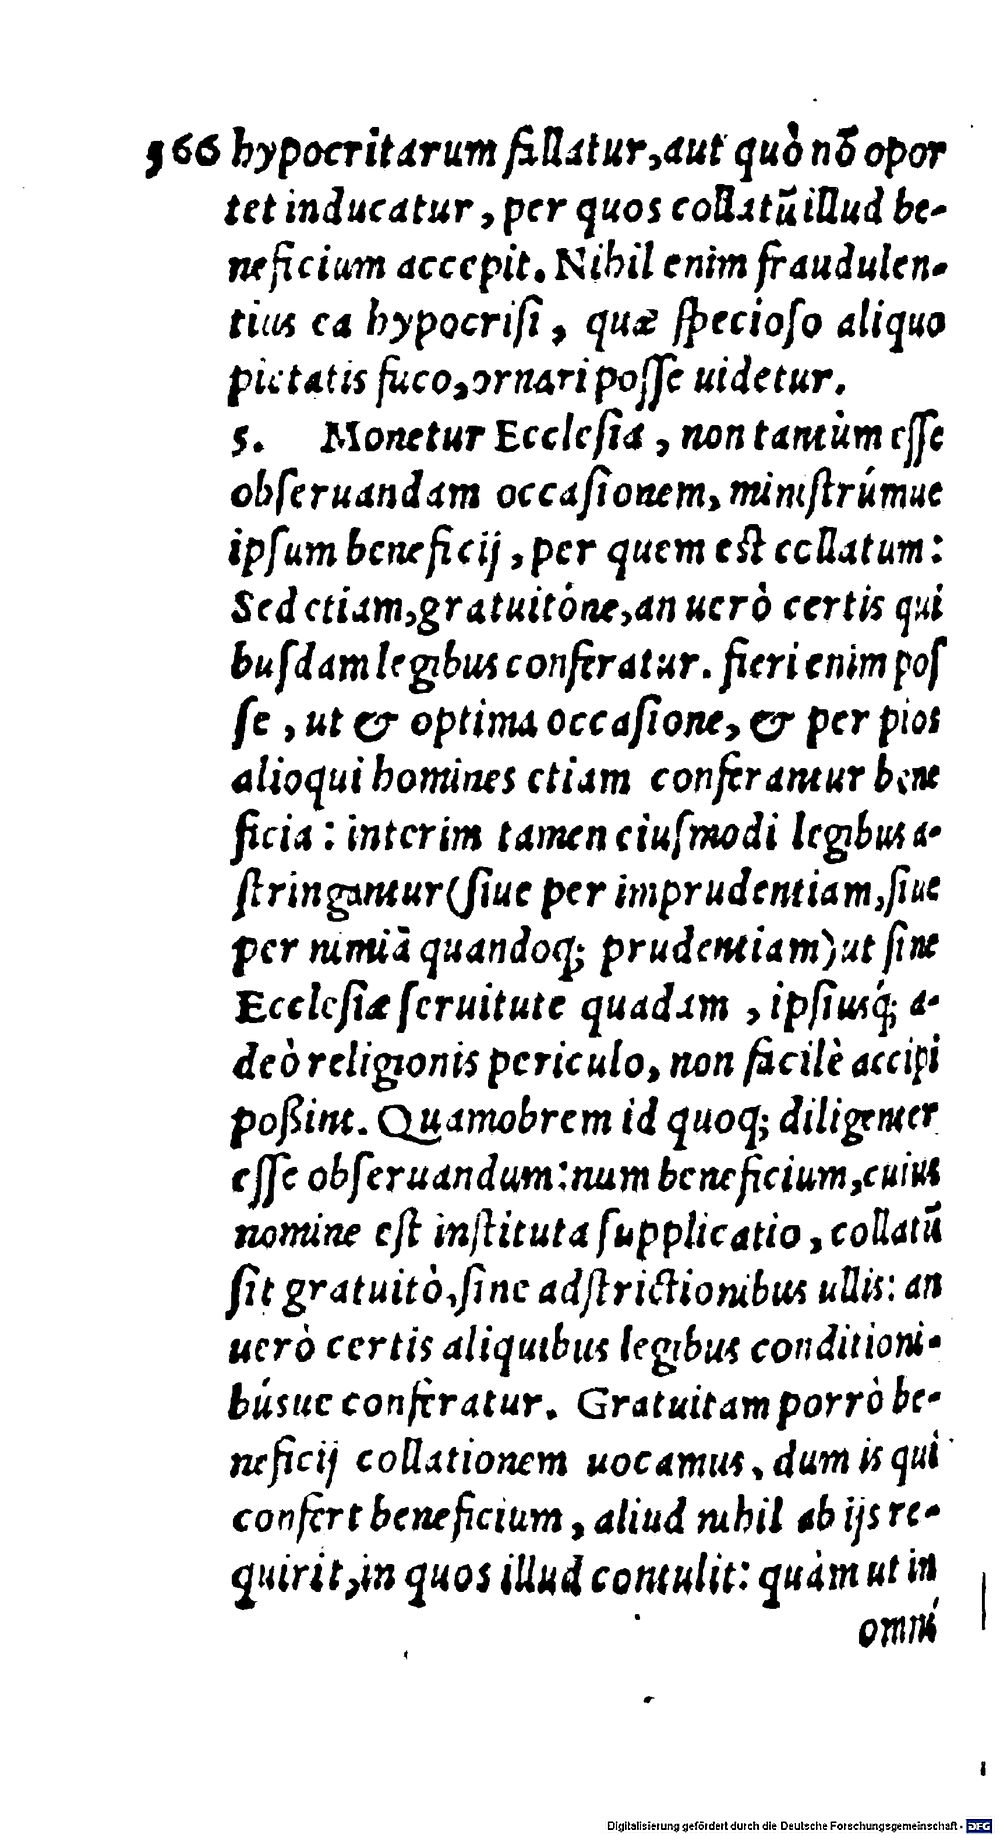 566 hypocritarum fallatur, aut quò nõ opor
tet inducatur, per quos collatũ illud be-
neficium accepit. Nihil enim fraudulen-
tius ea hypocriſi, quæ ſpecioſo aliquo
pietatis fuco, ornari poſſe uidetur.
5. Monetur Eccleſia, non tantùm eſſe
obſeruandam occaſionem, miniſtrúmue
ipſum beneficij, per quem eſt collatum:
Sed etiam, gratuitóne, an uerò certis qui
buſdam legibus conferatur. fieri enim poſ
ſe, ut & optima occaſione, & per pios
alioqui homines etiam conferantur bene
ficia: interim tamen eiuſmodi legibus a-
ſtringantur (ſiue per imprudentiam, ſiue
per nimiã quandoq; prudentiam) ut ſine
Eccleſiæ ſeruitute quadam, ipſiusq́; a-
deò religionis periculo, non facilè accipi
poßint. Quamobrem id quoq; diligenter
eſſe obſeruandum: num beneficium, cuius
nomine eſt inſtituta ſupplicatio, collatũ
ſit gratuitò, ſine adſtrictionibus ullis: an
uerò certis aliquibus legibus conditioni-
búsue conferatur. Gratuitam porrò be-
neficij collationem uocamus, dum is qui
confert beneficium, aliud nihil ab ijs re-
quirit, in quos illud contulit: quàm ut in
omni
Digitalisierung gefördert durch die Deutsche Forschungsgemeinschaft - DFG